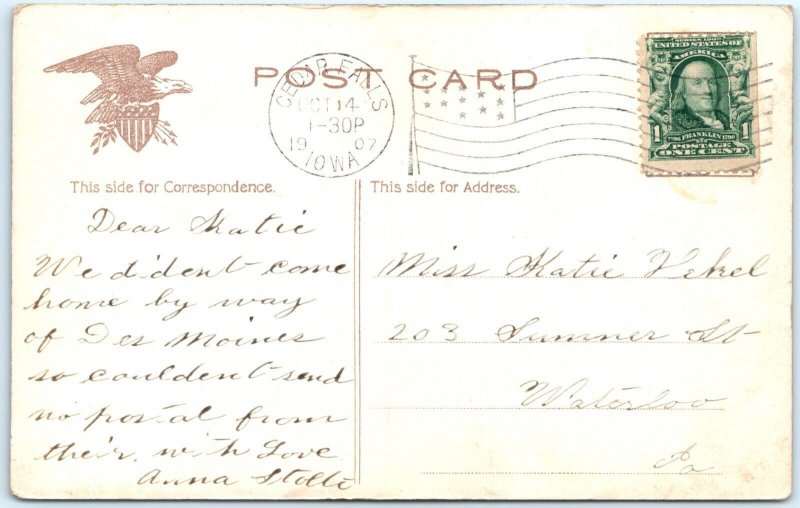 POST CARD
CEDAR FALLS
OCT 14
1-30P
1907
IOWA
SERIES 1902
UNITED STATES OF AMERICA
1706 FRANKLIN 1790
1 POSTAGE
ONE CENT
This side for Correspondence.
This side for Address.
Dear Katie
We did'dent come
home by way
of Des Moines
so couldent send
no postal from
their. with Love
Anna Stolte
Miss Katie
203 Sumner St
Waterloo
Ia